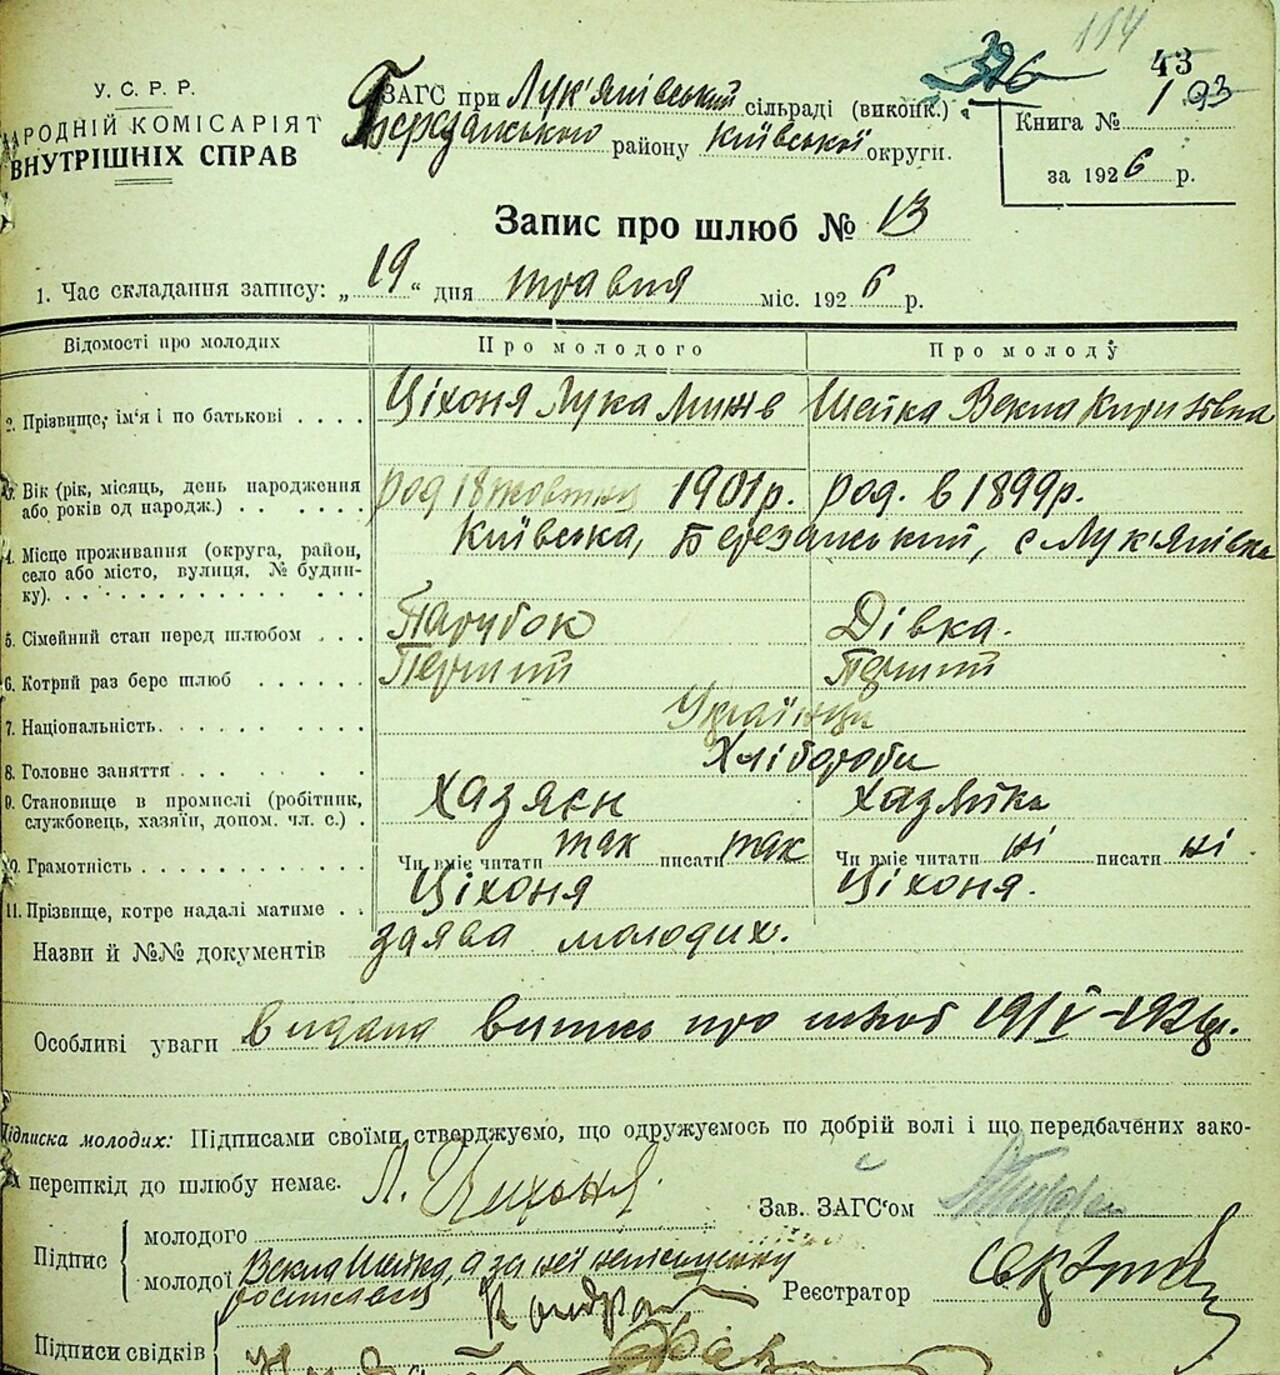 114
326
43
У. С. Р. Р.
НАРОДНІЙ КОМІСАРІЯТ
ВНУТРІШНІХ СПРАВ
ЗАГС при Лук'янівський сільраді (виконк.)
Березанського району Київської округи.
Книга № 1 93
за 1926 р.
Запис про шлюб № 13
1. Час складання запису: „19“ дня травня міс. 1926 р.
Відомості про молодих Про молодого Про молоду
2. Прізвище, ім'я і по батькові . . . . Ціхоня Лука Шейка Векла
3. Вік (рік, місяць, день народження або років од народж.) . . . . . . род 18 жовтня 1901 р. род. в 1899 р.
4. Місце проживання (округа, район, село або місто, вулиця, № будинку). . . . Київська, Березанський, с. Лук'янівка
5. Сімейний стан перед шлюбом . . . Парубок Дівка.
6. Котрий раз бере шлюб . . . . . . Перший Перший
7. Національність. . . . . . . . . Українці
8. Головне заняття . . . . . Хлібороби
9. Становище в промислі (робітник, службовець, хазяїн, допом. чл. с.) . Хазяєн хазяйка
10. Грамотність . . . . . . . . . . . Чи вміє читати так писати так Чи вміє читати ні писати ні
11. Прізвище, котре надалі матиме . . Ціхоня Ціхоня.
Назви й №№ документів заява молодих.
Особливі уваги видана витяг про шлюб 19/V-1926 р.
Підписка молодих: Підписами своїми стверджуємо, що одружуємось по добрій волі і що передбачених зако-
х перешкід до шлюбу немає.
Підпис
молодого Л. Цихоня.
молодої Векла Шейка, а за неї неписьменну
Зав. ЗАГС'ом
Реєстратор
Підписи свідків